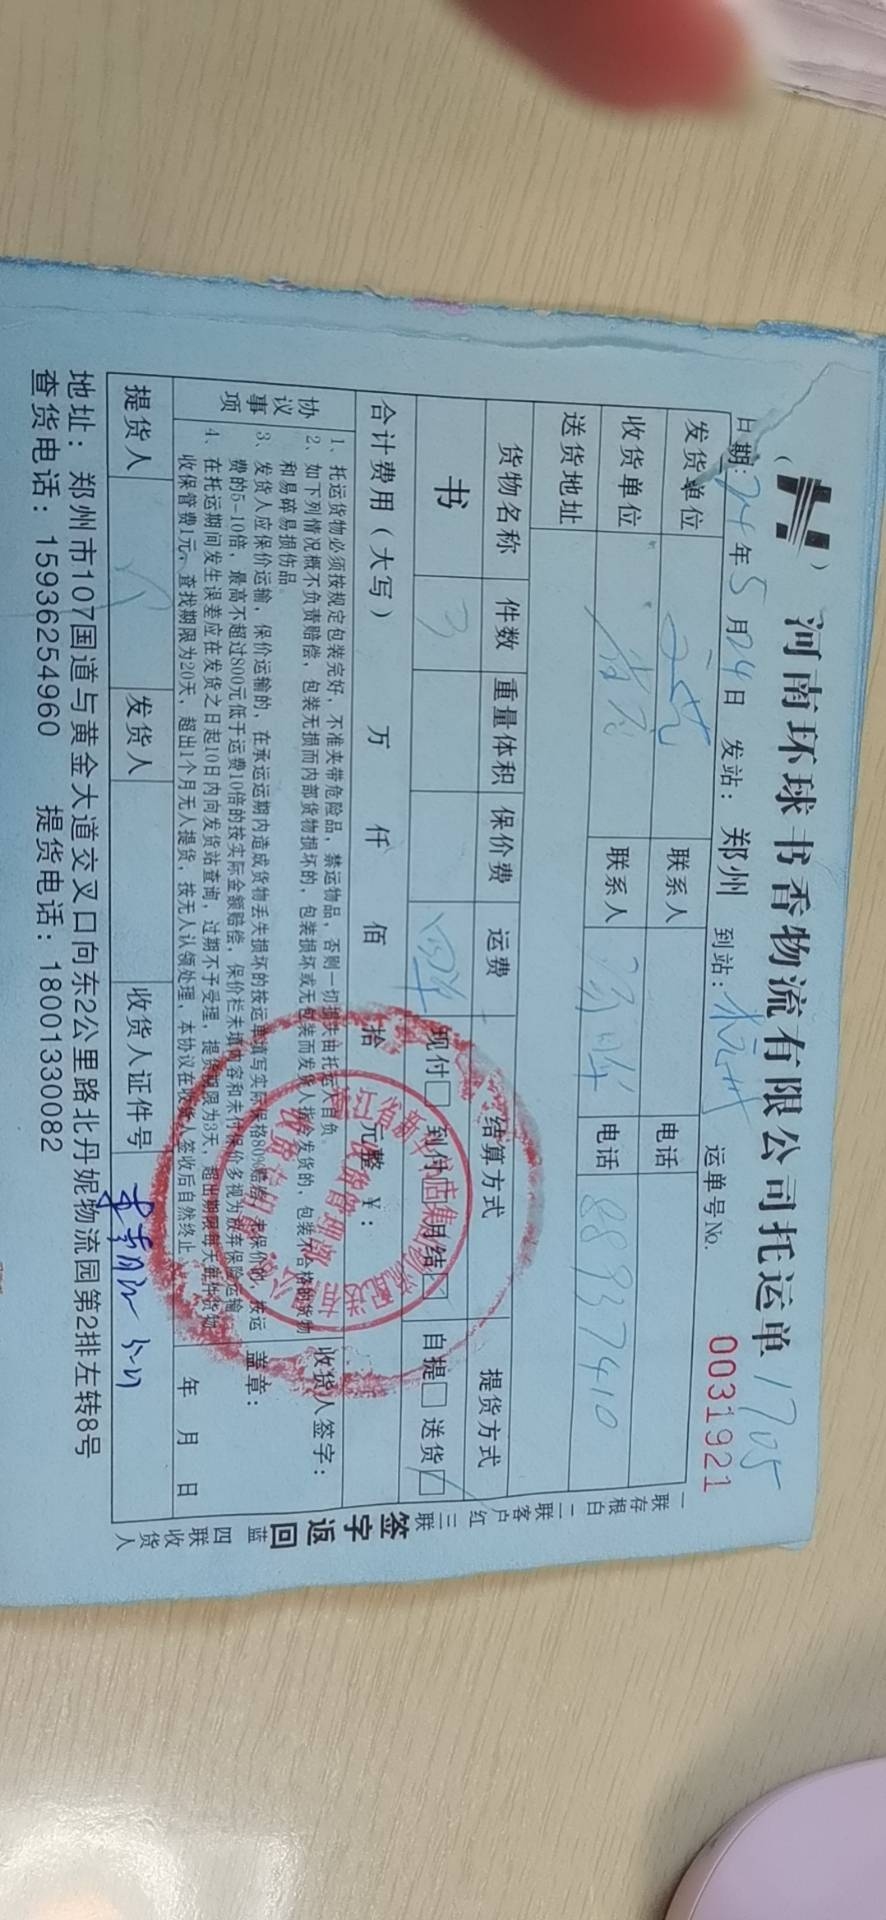 河南环球书香物流有限公司托运单 1705
日期：24年5月24日 发站：郑州 到站：杭州 运单号No. 0031921
发货单位 联系人 电话
收货单位 联系人 电话 88937410
送货地址
货物名称 件数 重量体积 保价费 运费 结算方式 提货方式
书 3 现付□ 到付□ 月结☑ 自提□ 送货☑
合计费用（大写） 万 仟 佰 拾 元整 ￥：
协议事项
1、托运货物必须按规定包装完好，不准夹带危险品，禁运物品，否则一切损失由托运人自负
2、如下列情况概不负责赔偿，包装无损而内部货物损坏的，包装损坏或无包装而发货人指令发货的，包装不合格的货物
和易碎易损伤品。
3、发货人应保价运输，保价运输的，在承运运期内造成货物丢失损坏的按运单填写实际价格80%赔偿，未保价的，按运
费的5-10倍，最高不超过800元低于运费10倍的按实际金额赔偿，保价栏未填内容和未付保价多视为放弃保险运输
4、在托运期间发生误差应在发货之日起10日内向发货站查询，过期不予受理，提货期限为3天，超出期限每天每件货物
收保管费1元，查找期限为20天，超出1个月无人提货，按无人认领处理，本协议在收货人签收后自然终止
收货人签字：
盖章：
年 月 日
提货人 发货人 收货人证件号
地址：郑州市107国道与黄金大道交叉口向东2公里路北丹妮物流园第2排左转8号
查货电话：15936254960 提货电话：18001330082
一联存根白 二联客户红 三联签字返回蓝 四联收货人